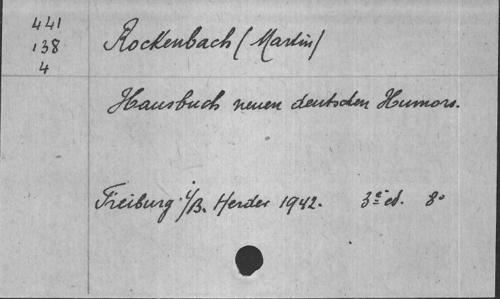 441
138
4
Rockenbach (Martin)
Hausbuch neuen deutschen Humors.
Freiburg i/B. Herder 1942. 3e ed. 8o